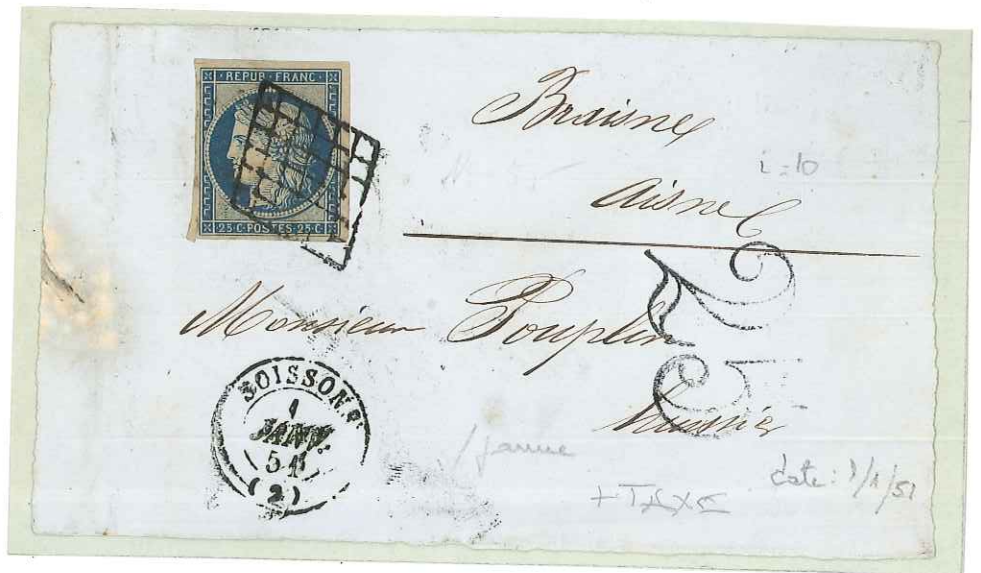 REPUB·FRANC·
25·C·POSTES·25·C
Braisne
i=10
Aisne
25
Monsieur Pouplin
huissier
SOISSONS
1
JANV.
51
(2)
/ jaune
date: 1/1/51
+ TAXE